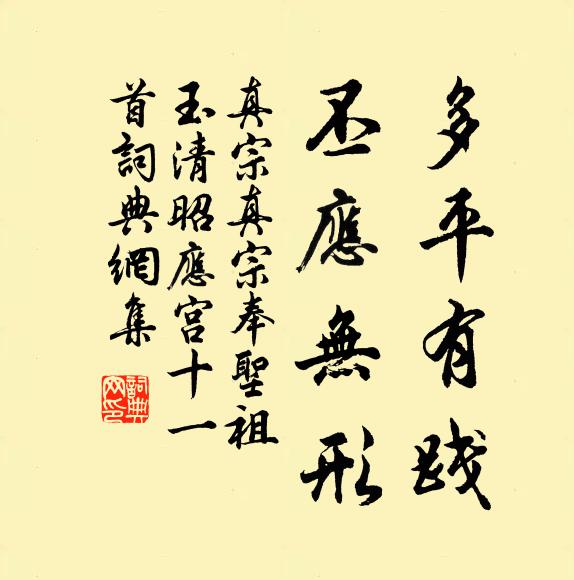 多平有踐
丕應無形
真宗真宗奉聖祖
玉清昭應宮十一
首詞典網集
詞典网印